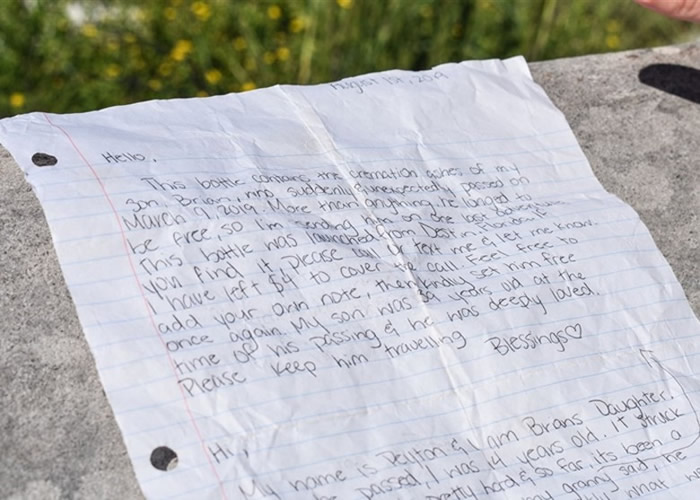 August 1st, 2019
Hello,
This bottle contains the cremation ashes of my
son, Brian, who suddenly & unexpectedly passed on
March 9, 2019. More than anything, he longed to
be free, so I'm sending him on one last adventure.
This bottle was launched from Destin, Florida. If
you find it please call or text me & let me know.
I have left $4 to cover the call. Feel free to
add your own note, then kindly set him free
once again. My son was 39 years old at the
time of his passing & he was deeply loved.
Please keep him travelling
Blessings♡
Hi,
My name is Peyton & I am Brians Daughter.
he passed, I was 14 years old. It struck
pretty hard & so far, its been a
granny said, he
what